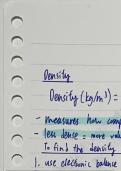 Density
Density (kg/m³) =
- measures how comp
- less dense = more vol
To find the density
1. use electronic balance